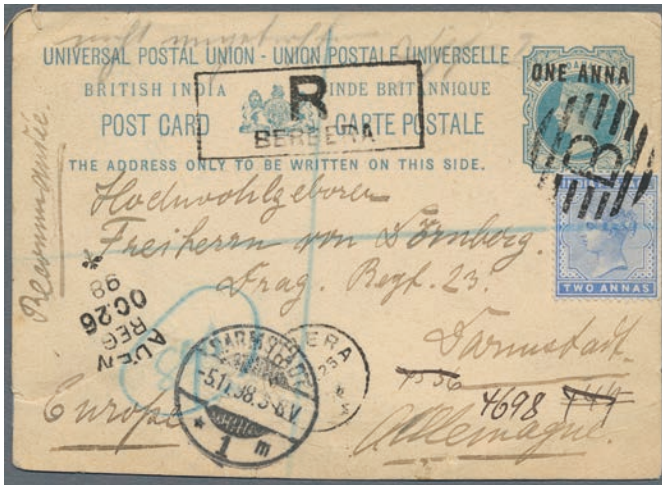 UNIVERSAL POSTAL UNION - UNION POSTALE UNIVERSELLE
BRITISH INDIA INDE BRITANNIQUE
POST CARD CARTE POSTALE
THE ADDRESS ONLY TO BE WRITTEN ON THIS SIDE.
ONE ANNA
R
BERBERA
B
TWO ANNAS
Recommandée.
Hochwohlgeboren
Freiherrn von Dörnberg.
Drag. Regt. 23.
Darmstadt
Allemagne.
Europe
ADEN
REG
OC 26
98
DARMSTADT
-5.11.98.5-6V
* 1 m
ERA
4698